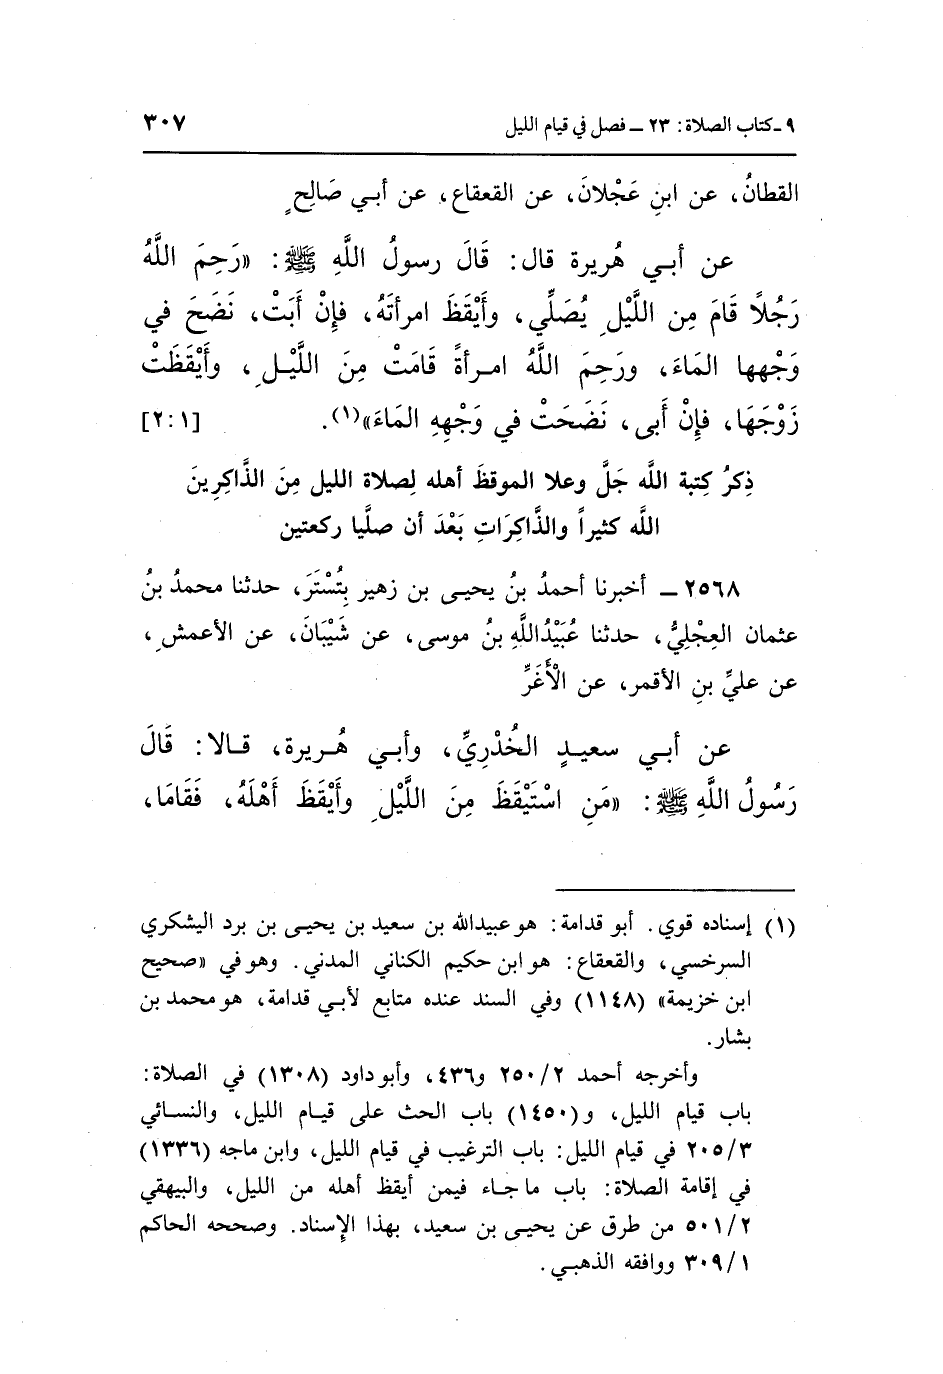 ٩ـ كتاب الصلاة: ٢٣ ــ فصل في قيام الليل ٣٠٧
القطانُ، عن ابنِ عَجْلانَ، عن القعقاعِ، عن أبي صَالِحٍ
عن أبي هُريرة قال: قَالَ رسولُ اللَّهِ ﷺ: «رَحِمَ اللَّهُ
رَجُلاً قَامَ مِن اللَّيْلِ يُصَلِّي، وأَيْقَظَ امرأتَهُ، فإِنْ أَبَتْ، نَضَحَ في
وَجْهِها المَاءَ، ورَحِمَ اللَّهُ امرأةً قَامَتْ مِنَ اللَّيْلِ، وأَيْقَظَتْ
زَوْجَهَا، فإِنْ أَبى، نَضَحَتْ في وَجْهِهِ المَاءَ»(١). [٢:١]
ذِكرُ كِتبة اللَّه جَلَّ وعلا الموقظَ أهله لِصلاة الليل مِنَ الذَّاكِرِينَ
اللَّه كثيراً والذَّاكِرَاتِ بَعْدَ أن صلَّيا ركعتين
٢٥٦٨ ــ أخبرنا أحمدُ بنُ يحيى بن زهير بِتُسْتَرَ، حدثنا محمدُ بنُ
عثمان العِجْلِيُّ، حدثنا عُبَيْدُاللَّهِ بنُ موسى، عن شَيْبَانَ، عن الأعمشِ،
عن عليِّ بنِ الأقمر، عن الْأَغَرِّ
عن أبي سعيدٍ الخُدْرِيِّ، وأبي هُريرة، قالا: قَالَ
رَسُولُ اللَّهِ ﷺ: «مَنِ اسْتَيْقَظَ مِنَ اللَّيْلِ وأَيْقَظَ أَهْلَهُ، فَقَامَا،
(١) إسناده قوي. أبو قدامة: هو عبيدالله بن سعيد بن يحيى بن برد اليشكري
السرخسي، والقعقاع: هو ابن حكيم الكناني المدني. وهو في «صحيح
ابن خزيمة» (١١٤٨) وفي السند عنده متابع لأبي قدامة، هو محمد بن
بشار.
وأخرجه أحمد ٢/٢٥٠ و٤٣٦، وأبو داود (١٣٠٨) في الصلاة:
باب قيام الليل، و(١٤٥٠) باب الحث على قيام الليل، والنسائي
٣/٢٠٥ في قيام الليل: باب الترغيب في قيام الليل، وابن ماجه (١٣٣٦)
في إقامة الصلاة: باب ما جاء فيمن أيقظ أهله من الليل، والبيهقي
٢/٥٠١ من طرق عن يحيى بن سعيد، بهذا الإسناد. وصححه الحاكم
١/٣٠٩ ووافقه الذهبي.